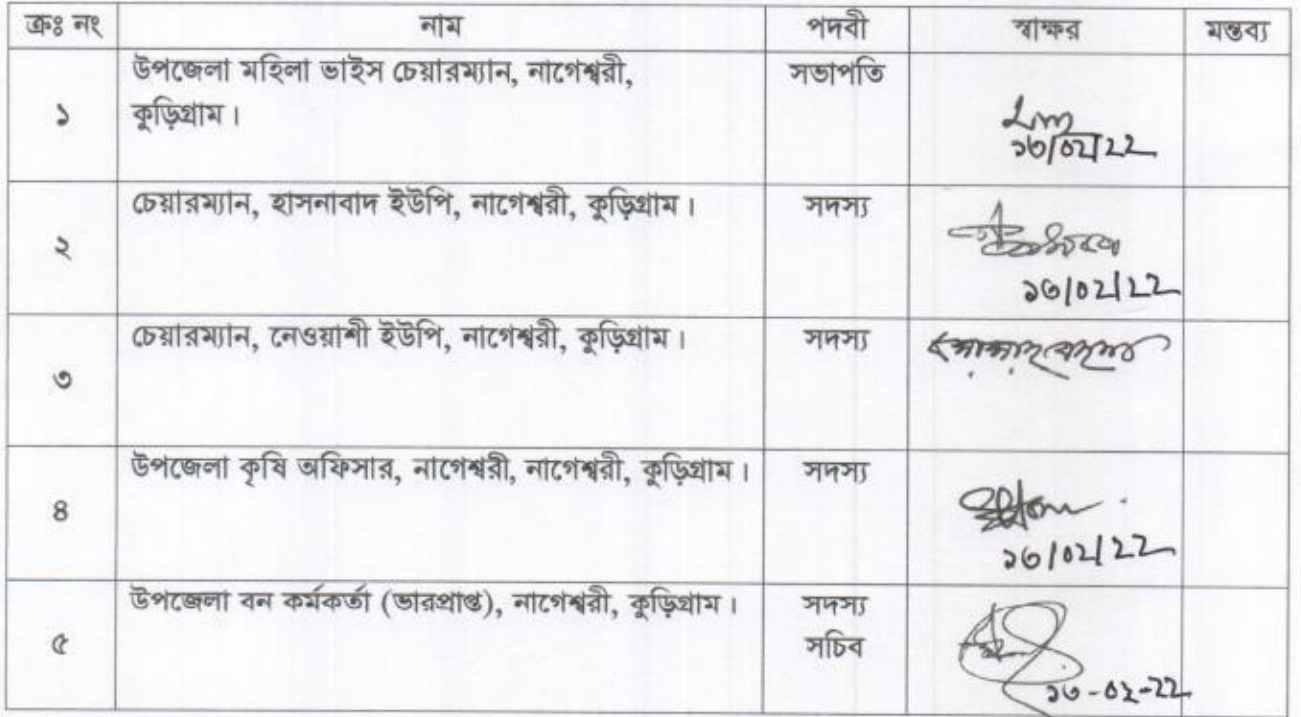 ক্রঃ নং নাম পদবী স্বাক্ষর মন্তব্য
উপজেলা মহিলা ভাইস চেয়ারম্যান, নাগেশ্বরী, সভাপতি
১ কুড়িগ্রাম।
১৩/০২/২২
চেয়ারম্যান, হাসনাবাদ ইউপি, নাগেশ্বরী, কুড়িগ্রাম। সদস্য
২
১৩/০২/২২
চেয়ারম্যান, নেওয়াশী ইউপি, নাগেশ্বরী, কুড়িগ্রাম। সদস্য
৩
উপজেলা কৃষি অফিসার, নাগেশ্বরী, নাগেশ্বরী, কুড়িগ্রাম। সদস্য
৪
১৩/০২/২২
উপজেলা বন কর্মকর্তা (ভারপ্রাপ্ত), নাগেশ্বরী, কুড়িগ্রাম। সদস্য
৫ সচিব
১৩-০২-২২